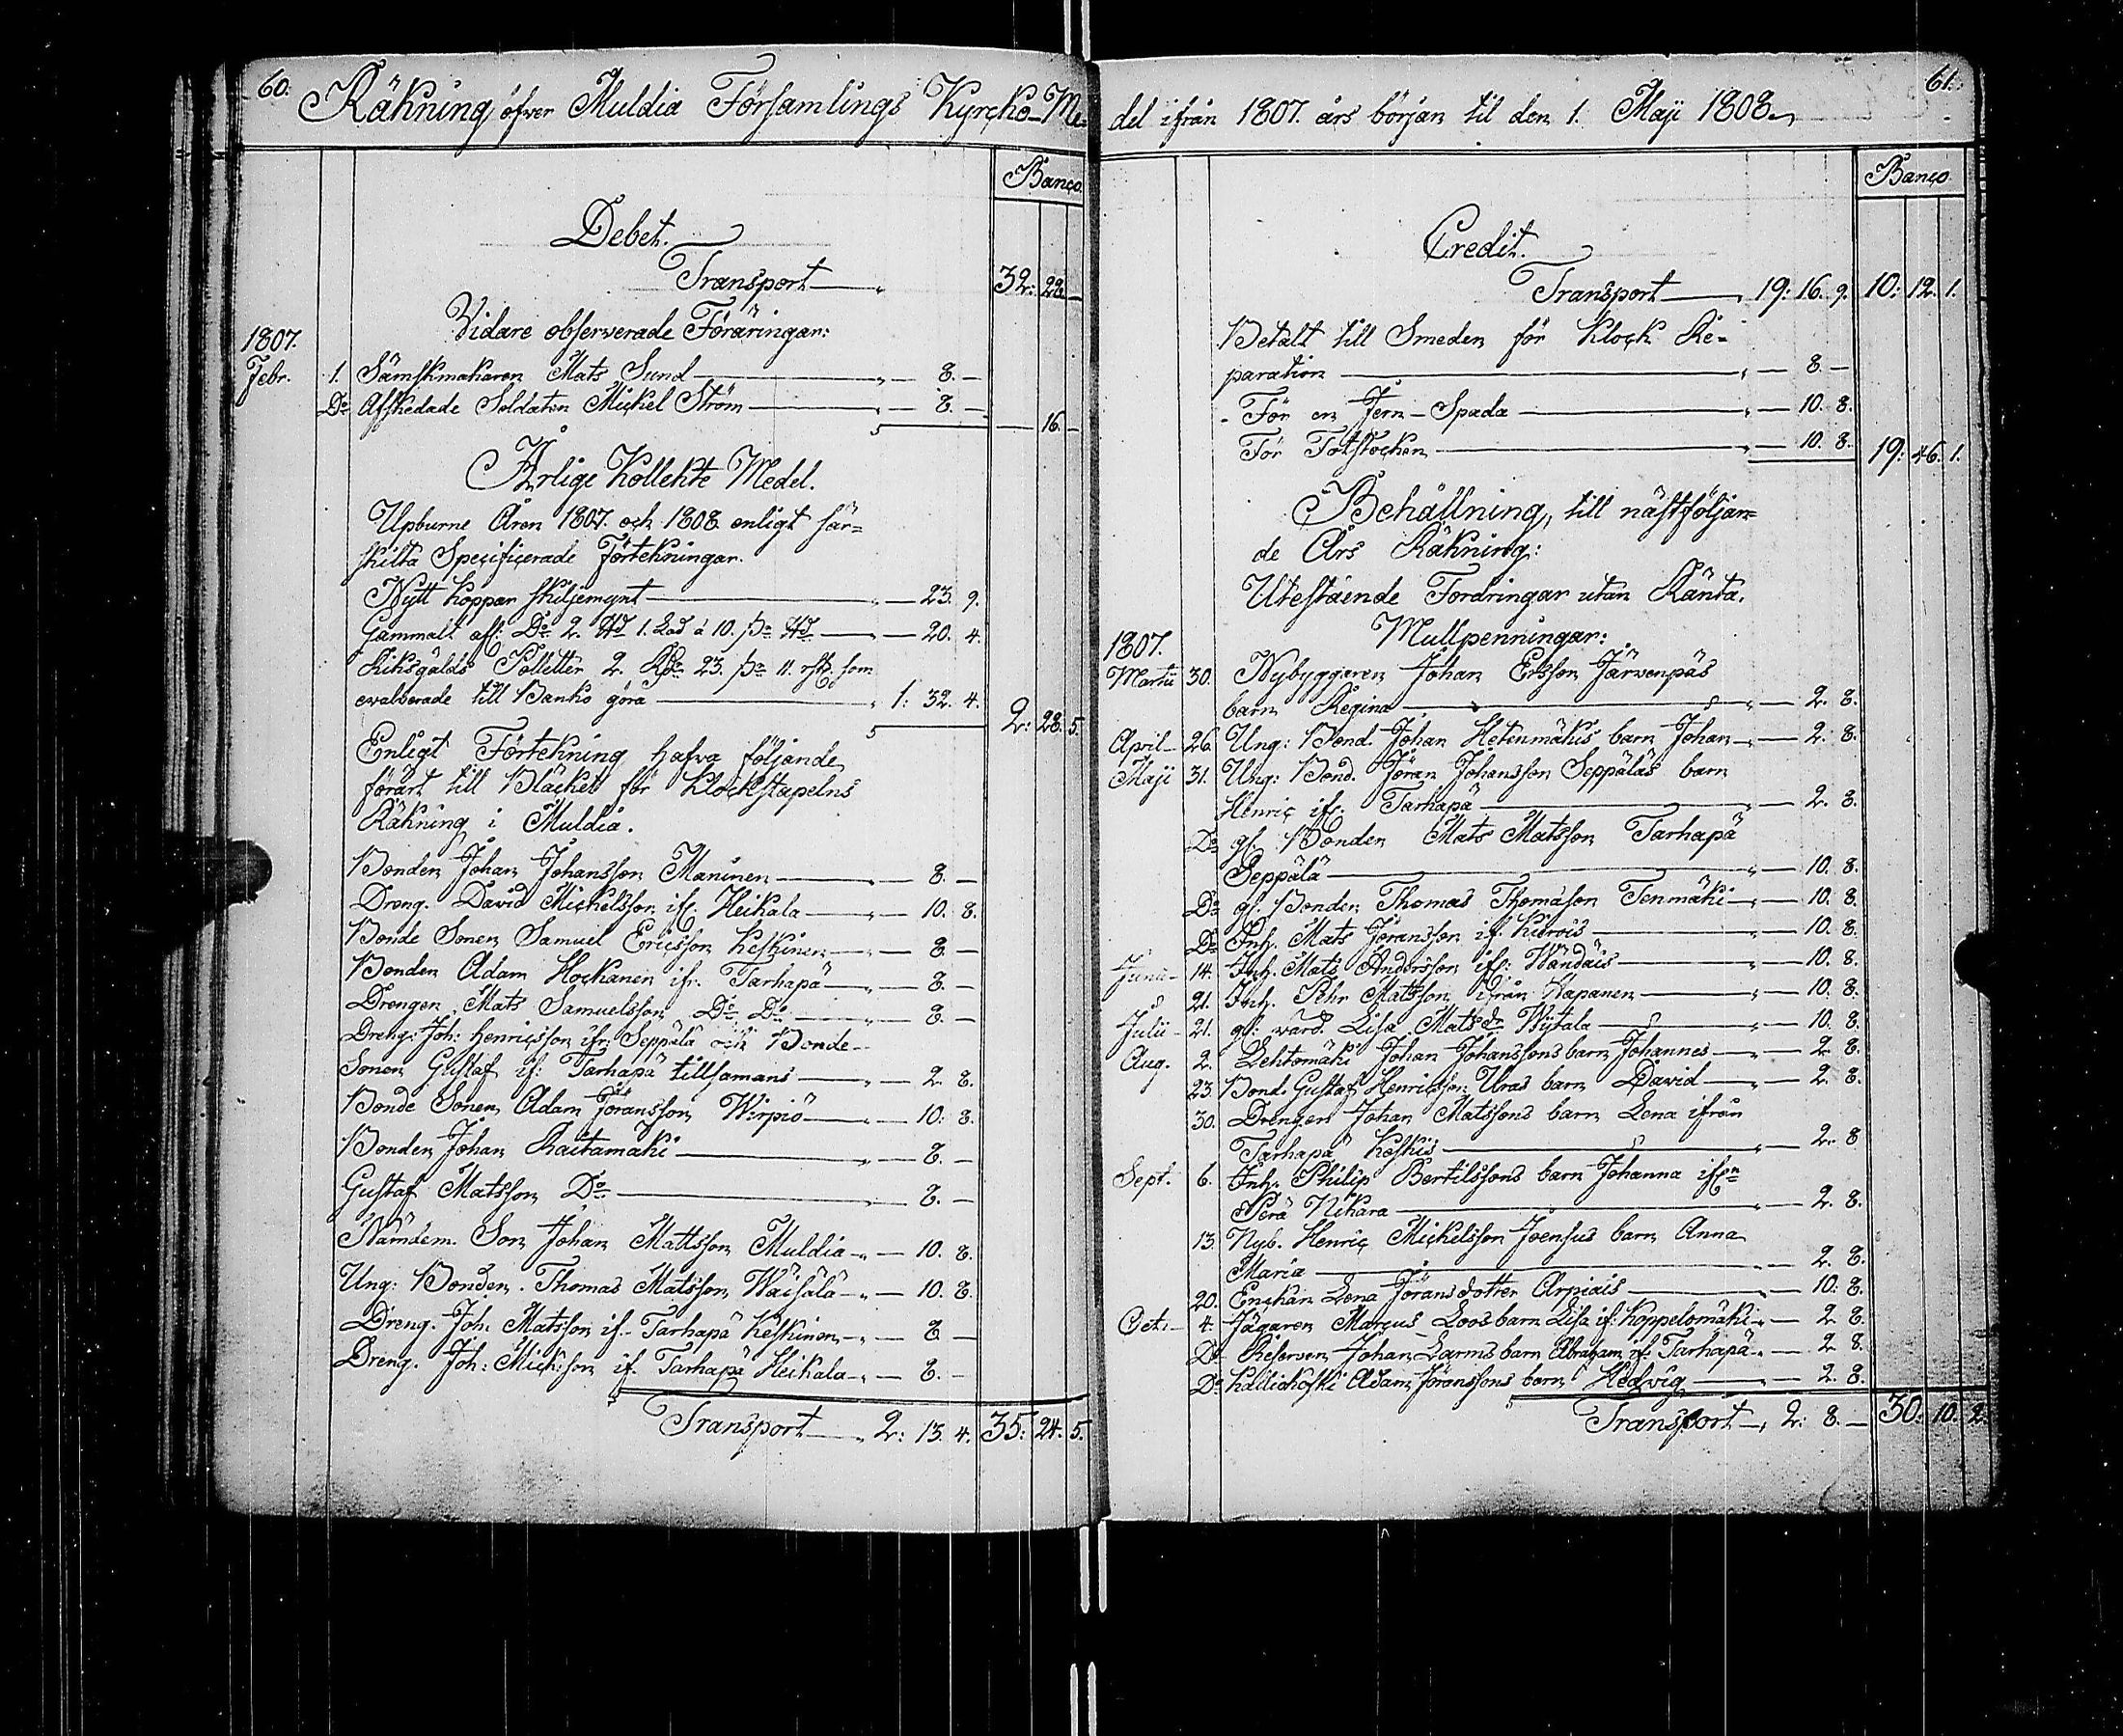 60.
Räkning öfver Muldia Församlings Kyrcko-Me-
Banco.
Debet.
Transport 32: 28. —
Vidare observerade Föräringar:
1807.
Febr. 1. Sämskmakaren Mats Sund — 8. —
Do Afskedade Soldaten Mickel Ström — 8. —
— 16. —
Årlige Kollekte Medel.
Upburne Åren 1807. och 1808. enligt sär-
skilta Specificerade Förtekningar.
Nytt koppar skiljemynt — 23. 9.
Gammalt af: Do 2. 1. Lod á 10. — 20. 4.
Riksgälds Polletter 2. Rdr 23. 11. som
evalverade till Banko göra 1: 32. 4.
2: 28. 5.
Enligt Förtekning hafva följande
förärt till Bläcket för Klockstapelns
Räkning i Muldia.
Bonden Johan Johansson Maninen — 8. —
Dreng. David Mickelsson if. Heikala — 10. 8.
Bonde Sonen Samuel Ericsson Keskinen — 8. —
Bonden Adam Hockanen ifr. Tarhapä — 8. —
Drengen Mats Samuelsson Do Do — 8. —
Dreng: Joh: Henricsson ifr: Seppälä och Bonde
Sonen Gustaf if: Tarhapä tillsamans — 2. 8.
Bonde Sonen Adam Jöransson Wirpiö — 10. 8.
Bonden Johan Raitamäki — 8. —
Gustaf Matsson Do — 8. —
Nämdem. Son Johan Mattsson Muldia — 10. 8.
Ung: Bonden Thomas Matsson Wäisälä — 10. 8.
Dreng. Joh: Matsson if. Tarhapä Keskinen — 8 —
Dreng. Joh: Mick:son if. Tarhapä Heikala — 8. —
Transport 2: 13. 4. 35: 24. 5.
61.
del ifrån 1807. års början til den 1. Maji 1808.
Banco
Credit.
Transport 19: 16. 9. 10: 12. 1.
Betalt till Smeden för Klock Re-
paration — 8. —
För en Jern-Spada — 10. 8.
För Fotstocken — 10. 8.
19: 46. 1.
Behållning, till nästföljan-
de Års Räkning:
Utestående Fordringar utan Ränta.
Mullpenningar:
1807.
Martii 30. Nybyggaren Johan Ersson Järvenpäs
barn Regina — 2. 8.
April 26. Ung: Bond. Johan Hetenmäkis barn Johan — 2. 8.
Maji 31. Ung: Bond. Jöran Johansson Seppäläs barn
Henric ifr. Tarhapä — 2. 8.
Do gl. Bonden Mats Matsson Tarhapä
Seppälä — 10. 8.
Do gl. Bonden Thomas Thomasson Tenmäki — 10. 8.
Do Inh. Mats Jöransson if. Kiwois — 10. 8.
Junii 14. Inh. Mats Andersson if: Wändäis — 10. 8.
21. Inh. Pehr Matsson ifrån Hapanen — 10. 8.
Julii 21. gl: värd. Lisa Matsdr Wiitala — 10. 8.
Aug. 2. Lehtomäki Johan Johanssons barn Johannes — 2. 8.
23. Bond. Gustaf Henricsson Uras barn David — 2. 8.
30. Drengen Johan Matssons barn Lena ifrån
Tarhapä Keskis — 2. 8
Sept. 6. Inh. Philip Bertilssons barn Johanna ifrn
Perä Nikara — 2. 8.
13. Nyb. Henric Mickelsson Joensus barn Anna
Maria — 2. 8.
20. Enckan Lena Jöransdotter Arpiais — 10. 8.
Oct. 4. Jägaren Marcus Loos barn Lisa if: Koppelomäki — 2. 8.
Do Reserven Johan Larms barn Abraham if. Tarhapä — 2. 8.
Do Adam Jöranssons barn Hedvig — 2. 8.
Transport 2: 8. — 30: 10. 2.